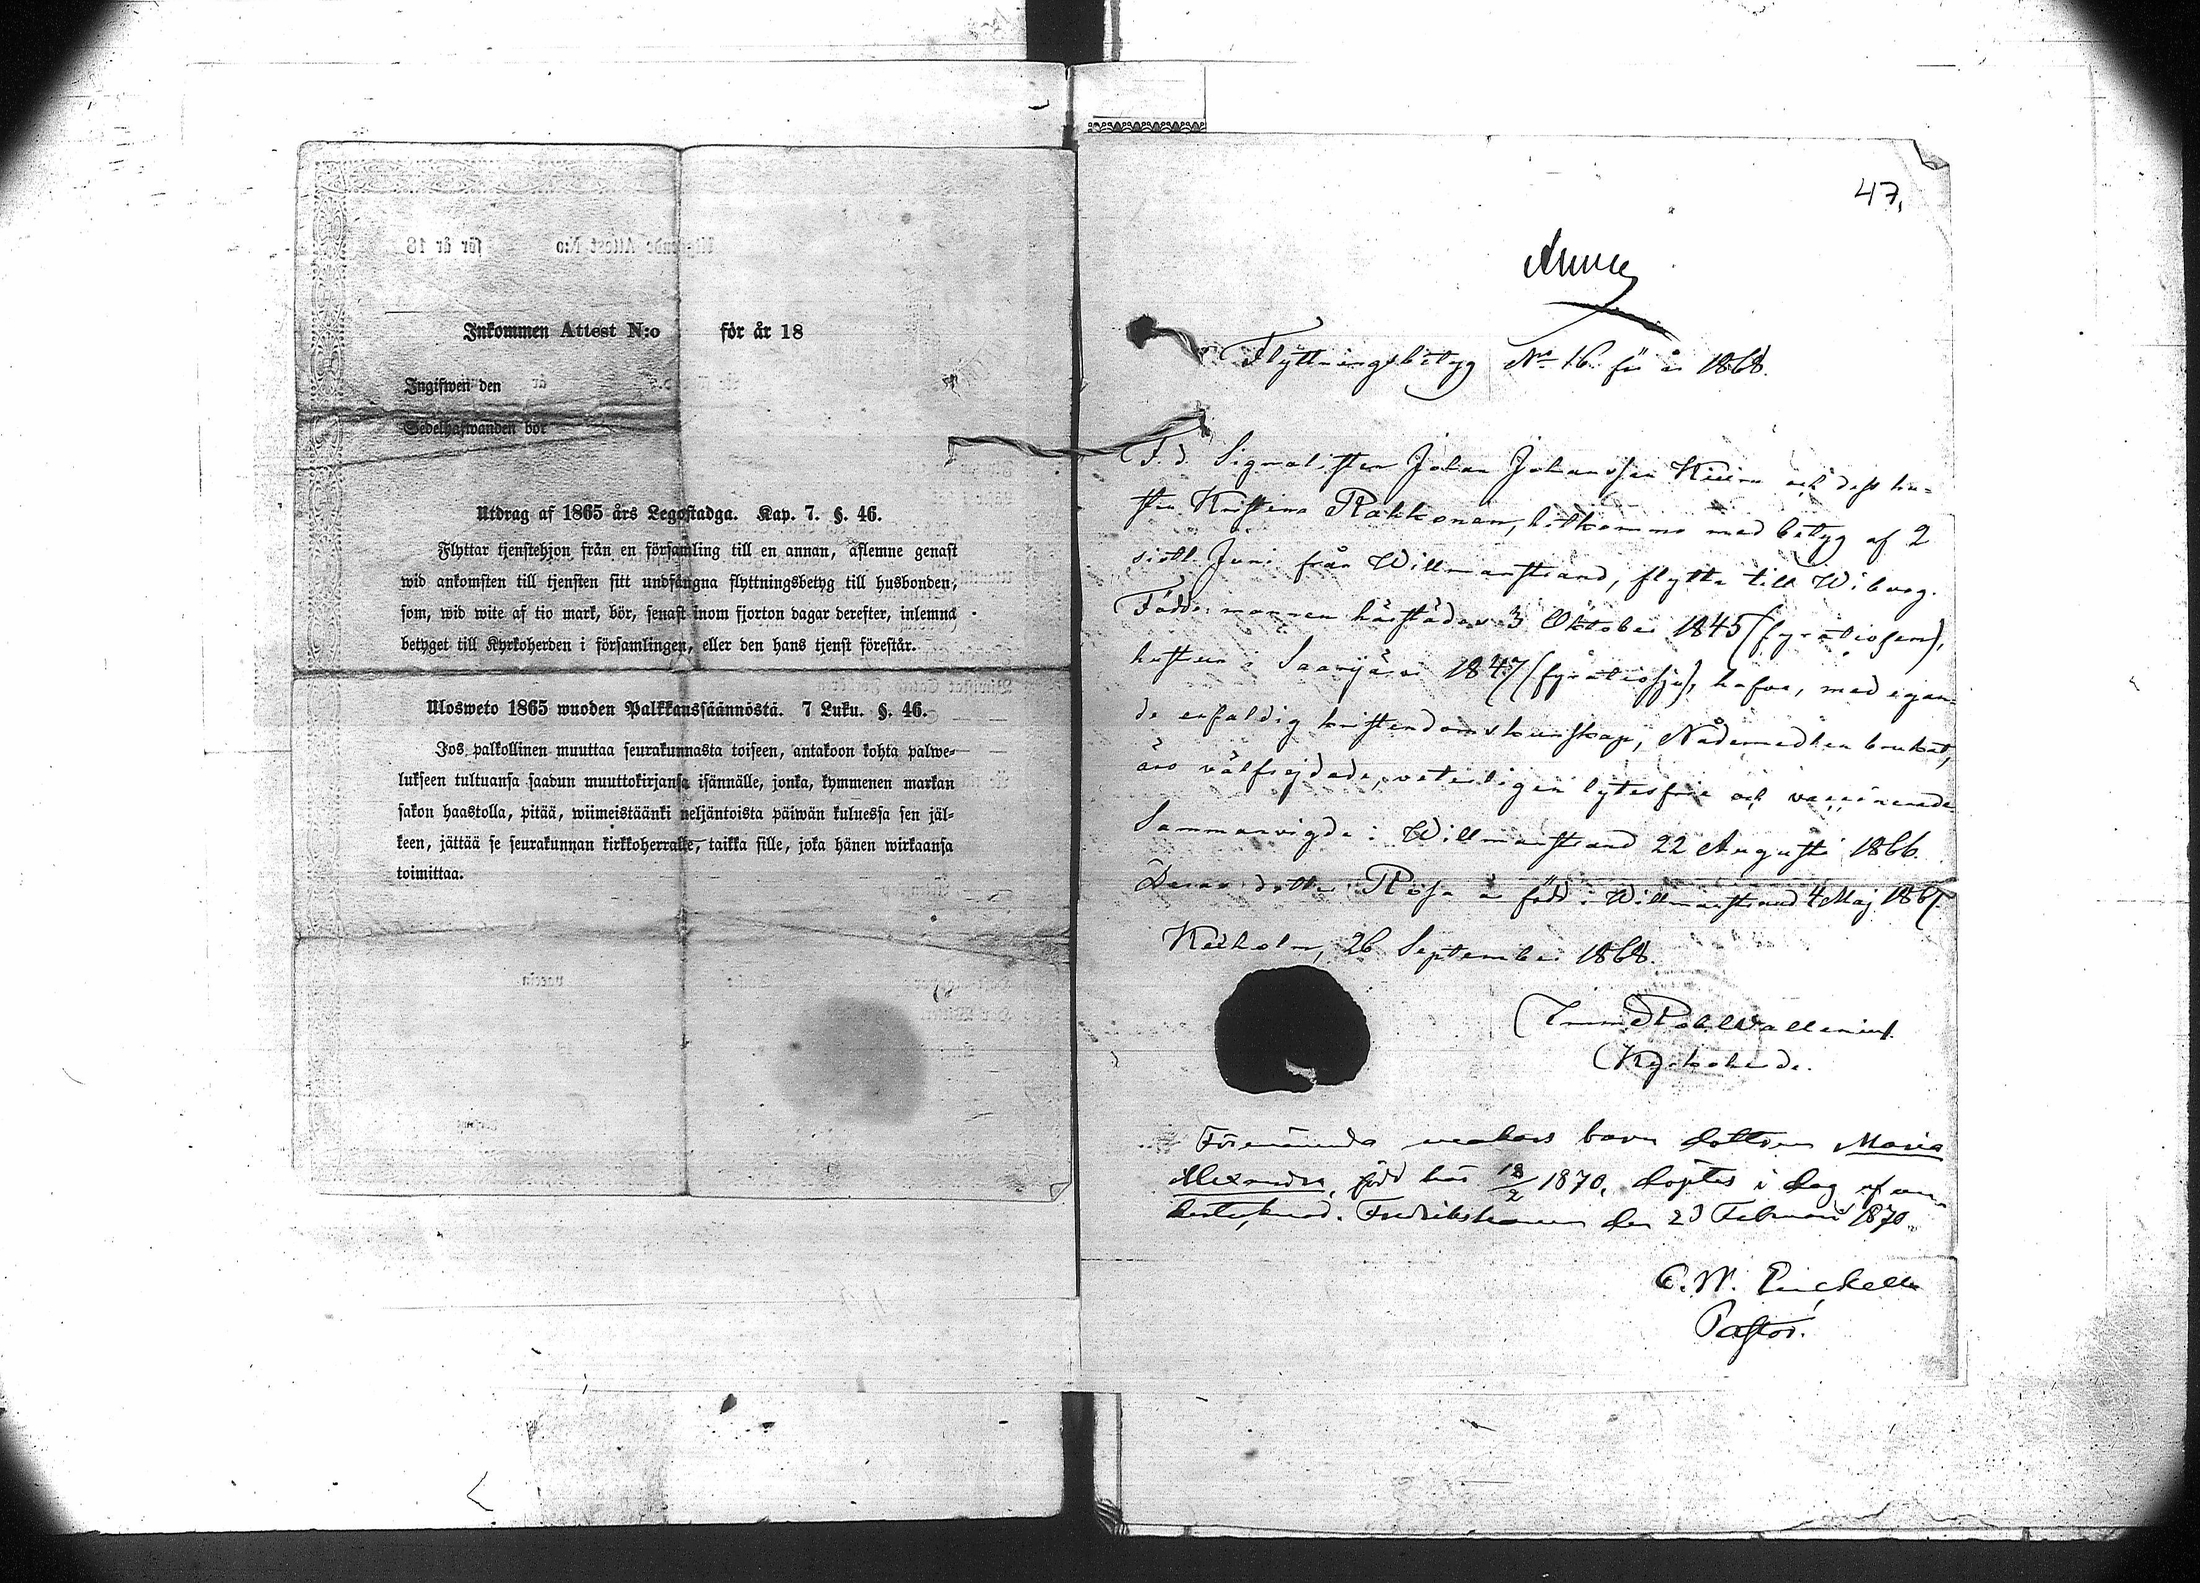 Inkommen Attest N:o för år 18
Ingifwen den
Sedelhafwanden bor
Utdrag af 1865 års Legostadga. Kap. 7. §. 46.
Flyttar tjenstehjon från en församling till en annan, aflemne genast
wid ankomsten till tjensten sitt undfångna flyttningsbetyg till husbonden,
som, wid wite af tio mark, bör, senast inom fjorton dagar derefter, inlemna
betyget till Kyrkoherden i församlingen, eller den hans tjenst förestår.
Ulosweto 1865 wuoden Palkkaussäännöstä. 7 Luku. §. 46.
Jos palkollinen muuttaa seurakunnasta toiseen, antakoon kohta palwe-
lukseen tultuansa saadun muuttokirjansa isännälle, jonka, kymmenen markan
sakon haastolla, pitää, wiimeistäänki neljäntoista päiwän kuluessa sen jäl-
keen, jättää se seurakunnan kirkkoherralle, taikka sille, joka hänen wirkaansa
toimittaa.
47.
Flyttningsbetyg No 16 för år 1868.
F.d. Signalisten Johan Johansson och dess hu-
stru Kristina Rakkonen, hitkomne med betyg af 2
sistl. Juni från Willmanstrand, flytta till Wiborg.
Födde: mannen härstädes 3 Oktober 1845 (fyratiofem),
hustrun i Saarijärvi 1847 (fyratiosju), hafva, med egan-
de enfaldig kristendomskunskap, Nådemedlen brukat,
äro välfrejdade, veterligen lytesfria och vaccinerade
Sammanvigde i Willmanstrand 22 Augusti 1866.
Deras dotter Rosa är född i Willmanstrand 4 Maj 1867.
Kexholm, 26 September 1868.
Wallenius
Kyrkoherde.
Förenämnda makars barn dottren Maria
Alexandra, född här 18/2 1870, döptes i dag af un-
dertecknad. Fredrikshamn den 23 Februari 1870.
Pastor.